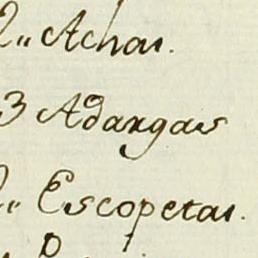 2,, Achas.
3 Adargas
2,, Escopetas.